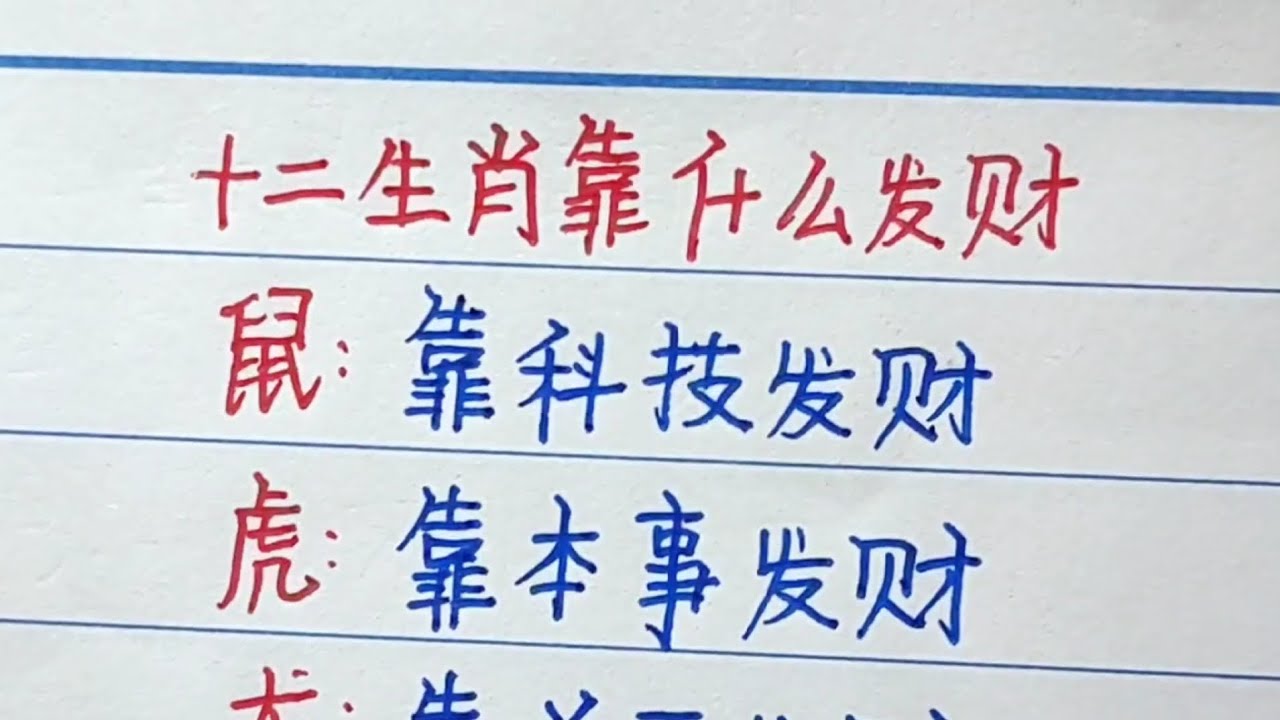 十二生肖靠什么发财
鼠：靠科技发财
虎：靠本事发财